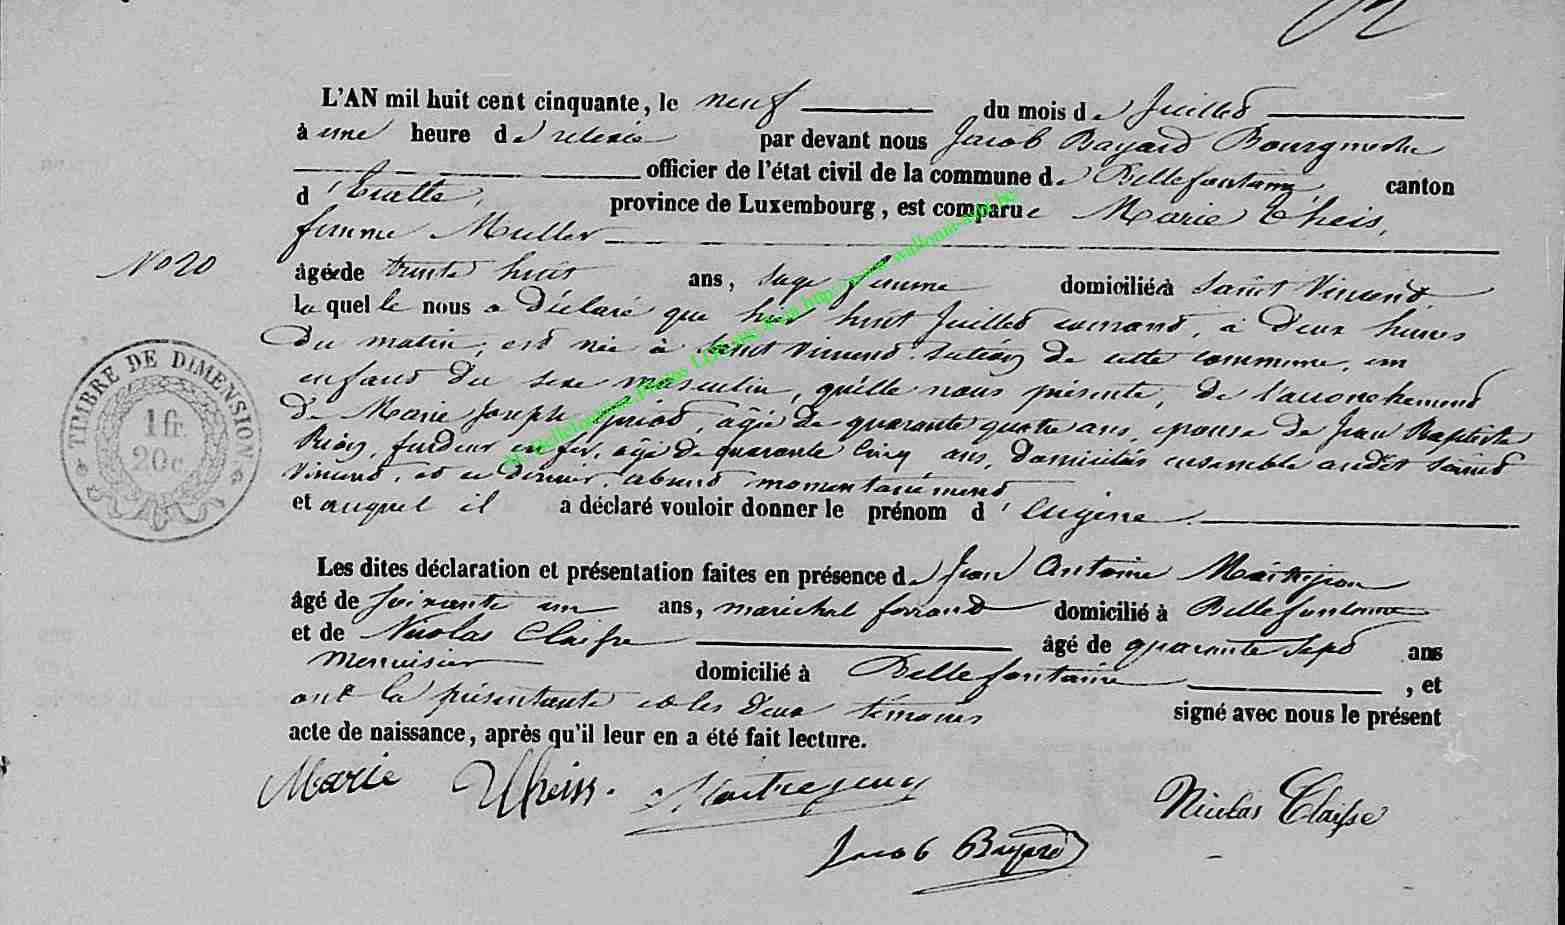 L'AN mil huit cent cinquante, le neuf du mois de Juillet
à une heure de relevée par devant nous Jacob Bayard Bourgmestre
officier de l'état civil de la commune de Bellefontaine, canton
d'Etalle, province de Luxembourg, est comparue Marie Theis,
femme Muller
No 20
âgée de trente huit ans, sage femme domiciliée à Saint Vincent
la quelle nous a déclaré que hier huit Juillet courant, à deux heures
du matin, est née à Saint Vincent Section de cette commune, un
enfant du sexe masculin, qu'elle nous présente, de l'accouchement
de Marie Joseph, âgée de quarante quatre ans, épouse de Jean Baptiste
fer, âgé de quarante cinq ans, domiciliés ensemble audit Saint
Vincent, et ce dernier absent momentanément
et auquel il a déclaré vouloir donner le prénom d'Eugène
TIMBRE DE DIMENSION
1 fr.
20 c.
Les dites déclaration et présentation faites en présence de Jean Antoine
âgé de soixante un ans, maréchal ferrant domicilié à Bellefontaine
et de Nicolas Claisse âgé de quarante sept ans
menuisier domicilié à Bellefontaine, et
ont la présentante et les deux témoins signé avec nous le présent
acte de naissance, après qu'il leur en a été fait lecture.
Marie Theiss. Nicolas Claisse
Jacob Bayard